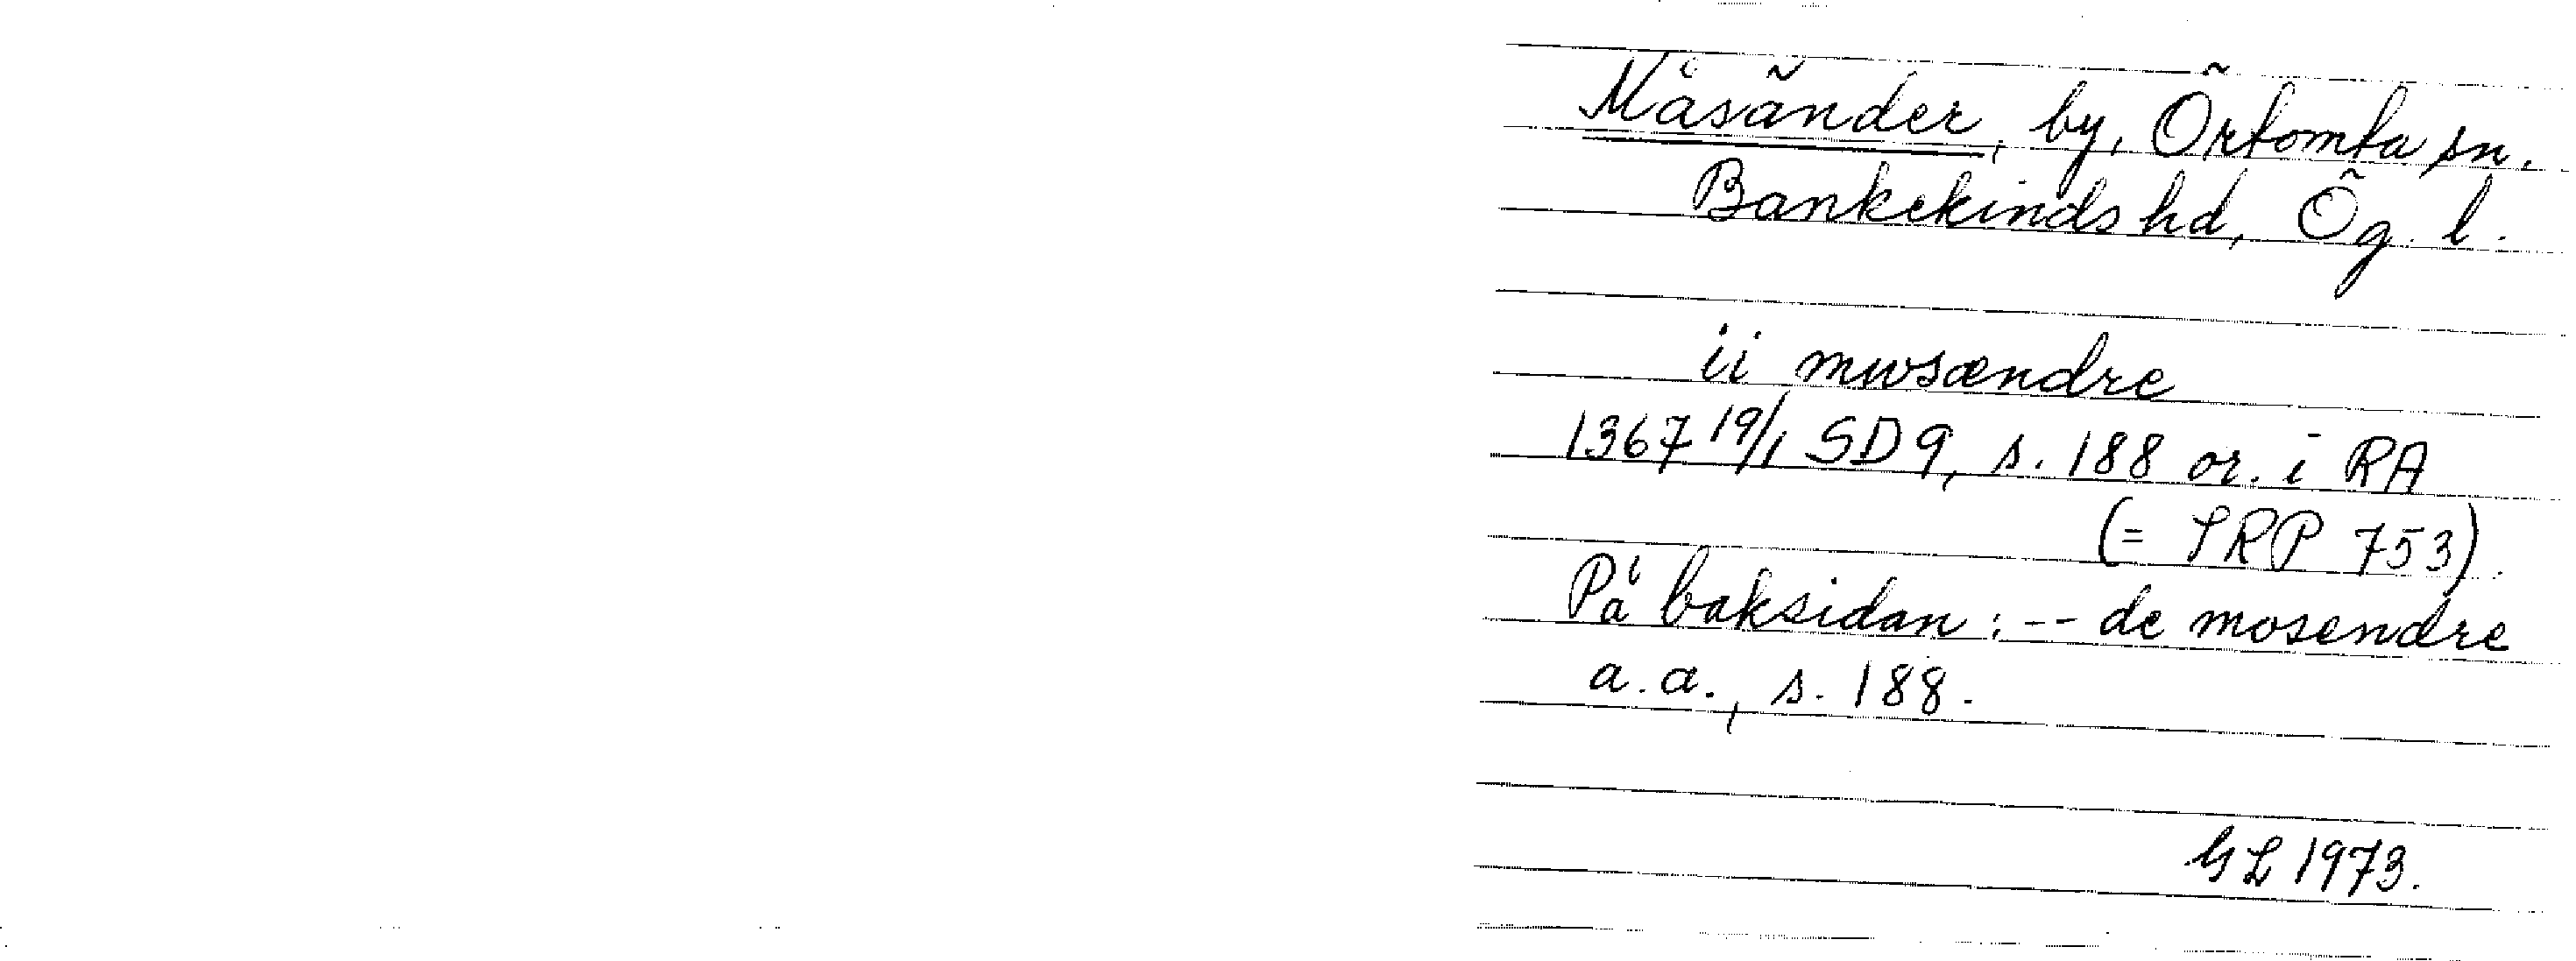 Måsänder, by, Örtomta sn,
Bankekinds hd, Ög. l.
ii mwsændre
1367 19/1 SD 9, s. 188 or. i RA
(= SRP 753).
På baksidan: -- de mosendre
a.a., s. 188.
GL 1973.